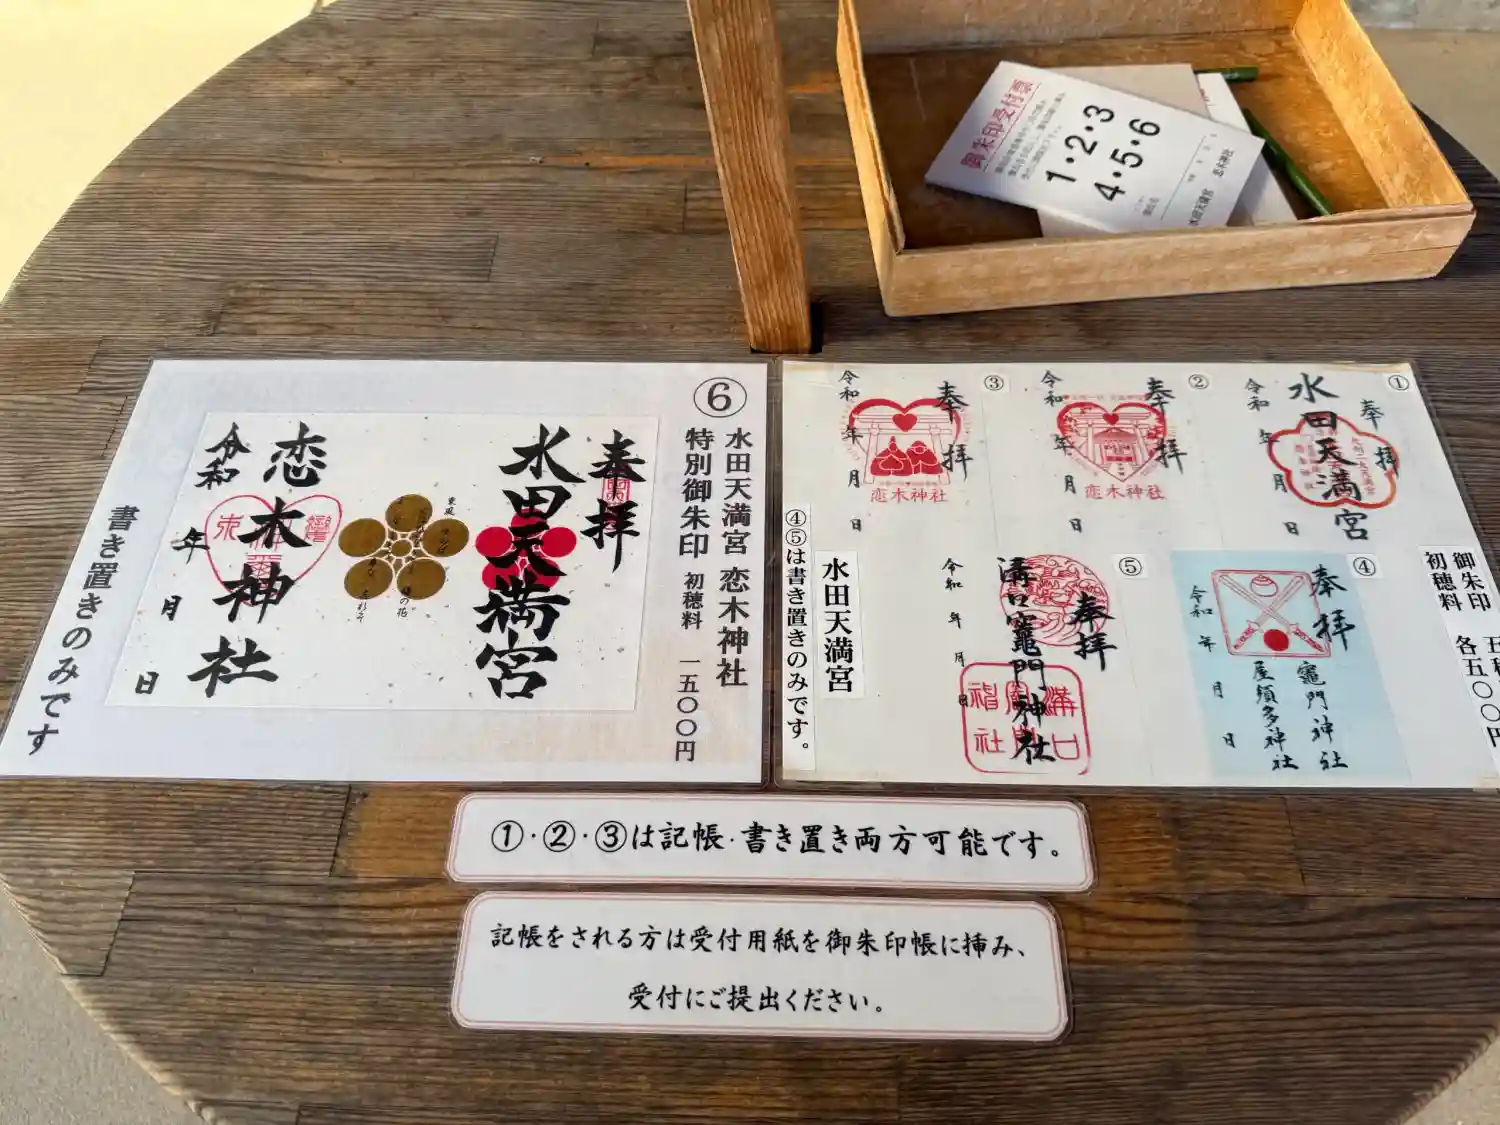 御朱印受付票
1・2・3
4・5・6
水田天満宮
恋木神社
⑥
水田天満宮 恋木神社
特別御朱印 初穂料 一五〇〇円
奉拝
水田天満宮
恋木神社
令和 年 月 日
書き置きのみです
①
奉拝
水田天満宮
令和 年 月 日
②
奉拝
恋木神社
令和 年 月 日
③
奉拝
恋木神社
令和 年 月 日
御朱印
初穂料 各五〇〇円
④
奉拝
竈門神社
屋須多神社
令和 年 月 日
⑤
奉拝
溝口竈門神社
令和 年 月 日
水田天満宮
④⑤は書き置きのみです。
①・②・③は記帳・書き置き両方可能です。
記帳をされる方は受付用紙を御朱印帳に挿み、
受付にご提出ください。